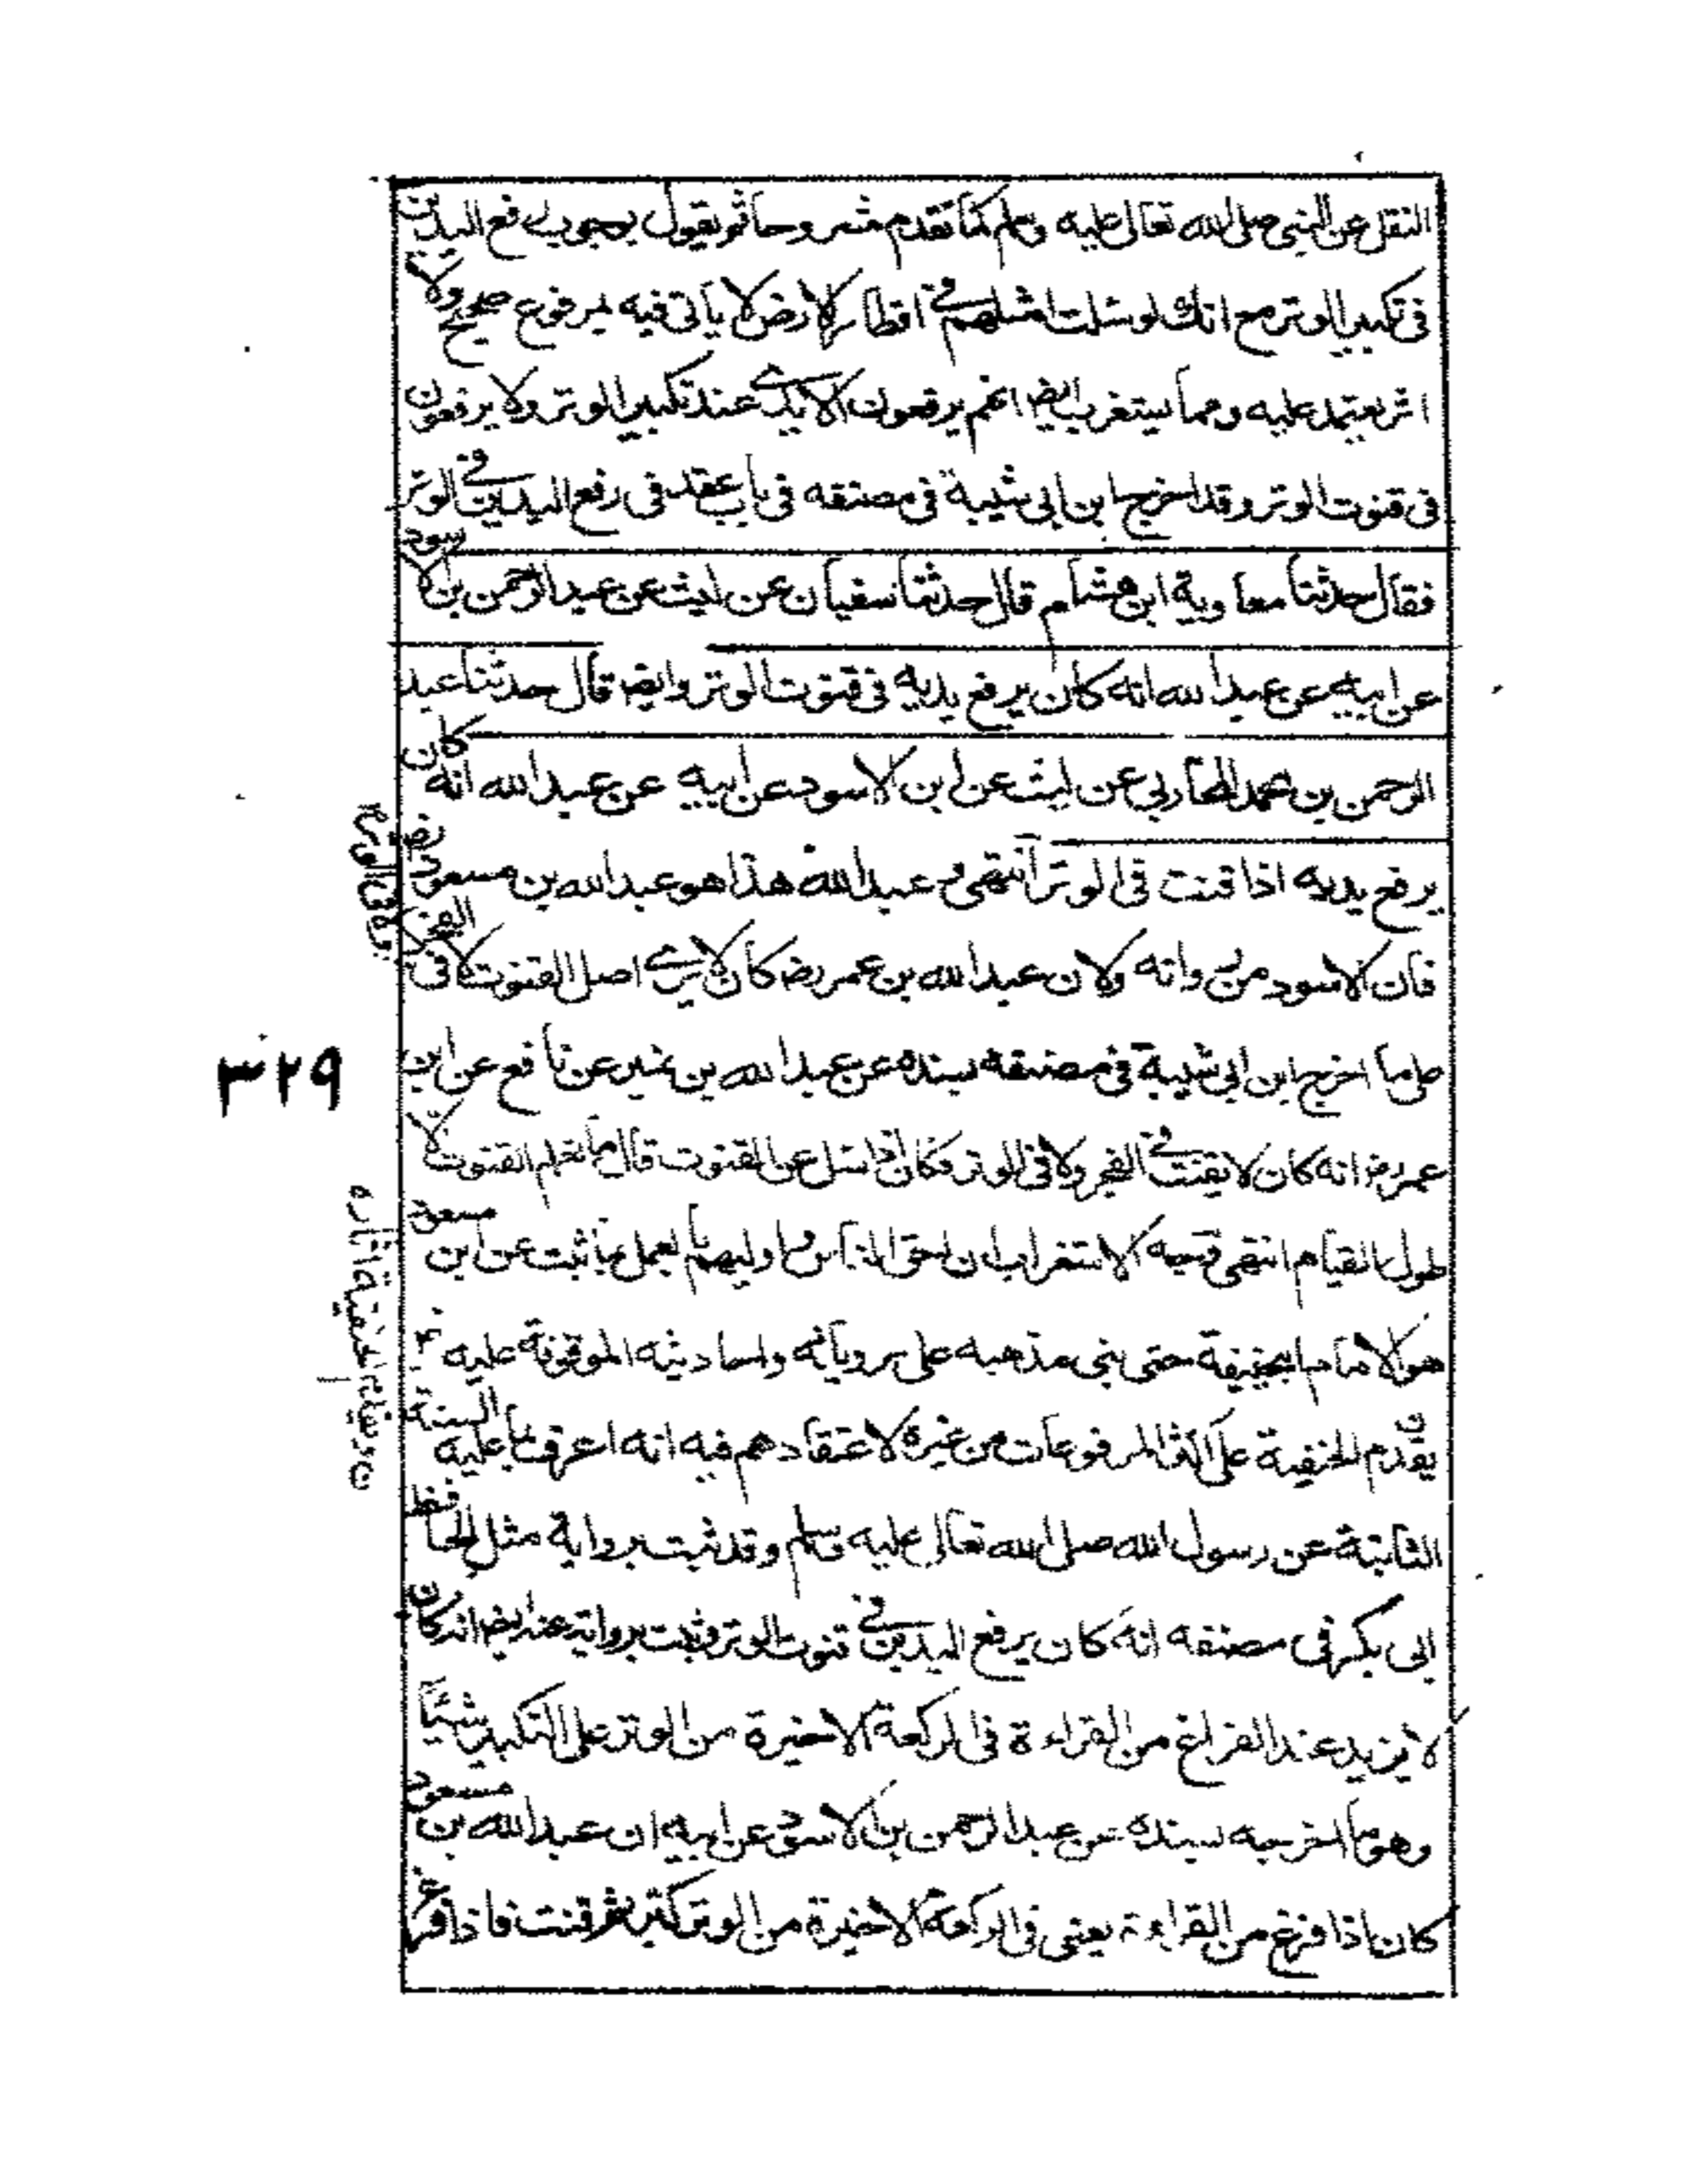 النقل عن النبي صلى الله تعالى عليه وسلم كما تقدم مشروحا ثم يقول بوجوب رفع اليدين
في تكبير الوتر مع انك لو سئلت امثلهم في اقطار الارض لا ياتى فيه بمرفوع صحيح ولا
اثر يعتمد عليه ومما يستغرب ايضا انهم يرفعون الايدي عند تكبير الوتر ولا يرفعون
في قنوت الوتر وقد اخرج ابن ابي شيبة في مصنفه في باب عقده في رفع اليدين في الوتر
فقال حدثنا معاوية ابن هشام قال حدثنا سفيان عن ليث عن عبد الرحمن بن الاسود
عن ابيه عن عبد الله انه كان يرفع يديه في قنوت الوتر وايضا قال حدثنا عبد
الرحمن بن محمد المحاربي عن ليث عن ابن الاسود عن ابيه عن عبد الله انه كان
يرفع يديه اذا قنت في الوتر انتهى وعبد الله هذا هو عبد الله بن مسعود رض
فان الاسود من رواته ولان عبد الله بن عمر رض كان لا يرى اصل القنوت لا في الفجر
ولا في الوتر
على ما اخرج ابن ابي شيبة في مصنفه بسنده عن عبد الله بن نمير عن نافع عن ابن
٣٢٩
عمر رض انه كان لا يقنت في الفجر ولا في الوتر فكان اذا سئل عن القنوت قال ما نعلم القنوت الا
طول القيام انتهى وجه الاستغراب ان احق الناس واوليهم بالعمل بما ثبت عن ابن مسعود
هو الامام ابو حنيفة حتى بنى مذهبه على مروياته واحاديثه الموقوفة عليه
يقدم الحنفية على المرفوعات من غيره لاعتقادهم فيه انه اعرف بما عليه السنة
الثابتة عن رسول الله صلى الله تعالى عليه وسلم وقد ثبت برواية مثل الحافظ
ابي بكر في مصنفه انه كان يرفع اليدين في قنوت الوتر وثبت بروايته عنه ايضا انه كان
لا يزيد عند الفراغ من القراءة في الركعة الاخيرة من الوتر على التكبير شيئا
وهو ما اخرجه بسنده عن عبد الرحمن بن الاسود عن ابيه ان عبد الله بن مسعود
كان اذا فرغ من القراءة يعني في الركعة الاخيرة من الوتر كبر ثم قنت فاذا فرغ